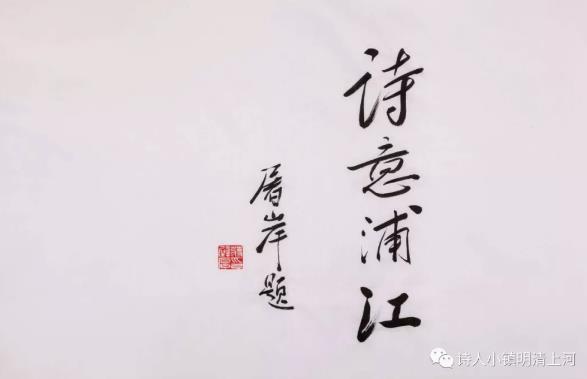 诗意浦江
屠岸题
诗人小镇明清上河